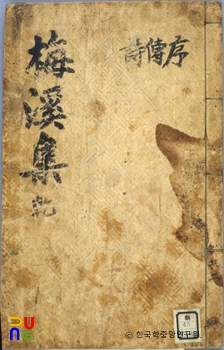 梅溪集 乾
序傳詩
© 한국학중앙연구원